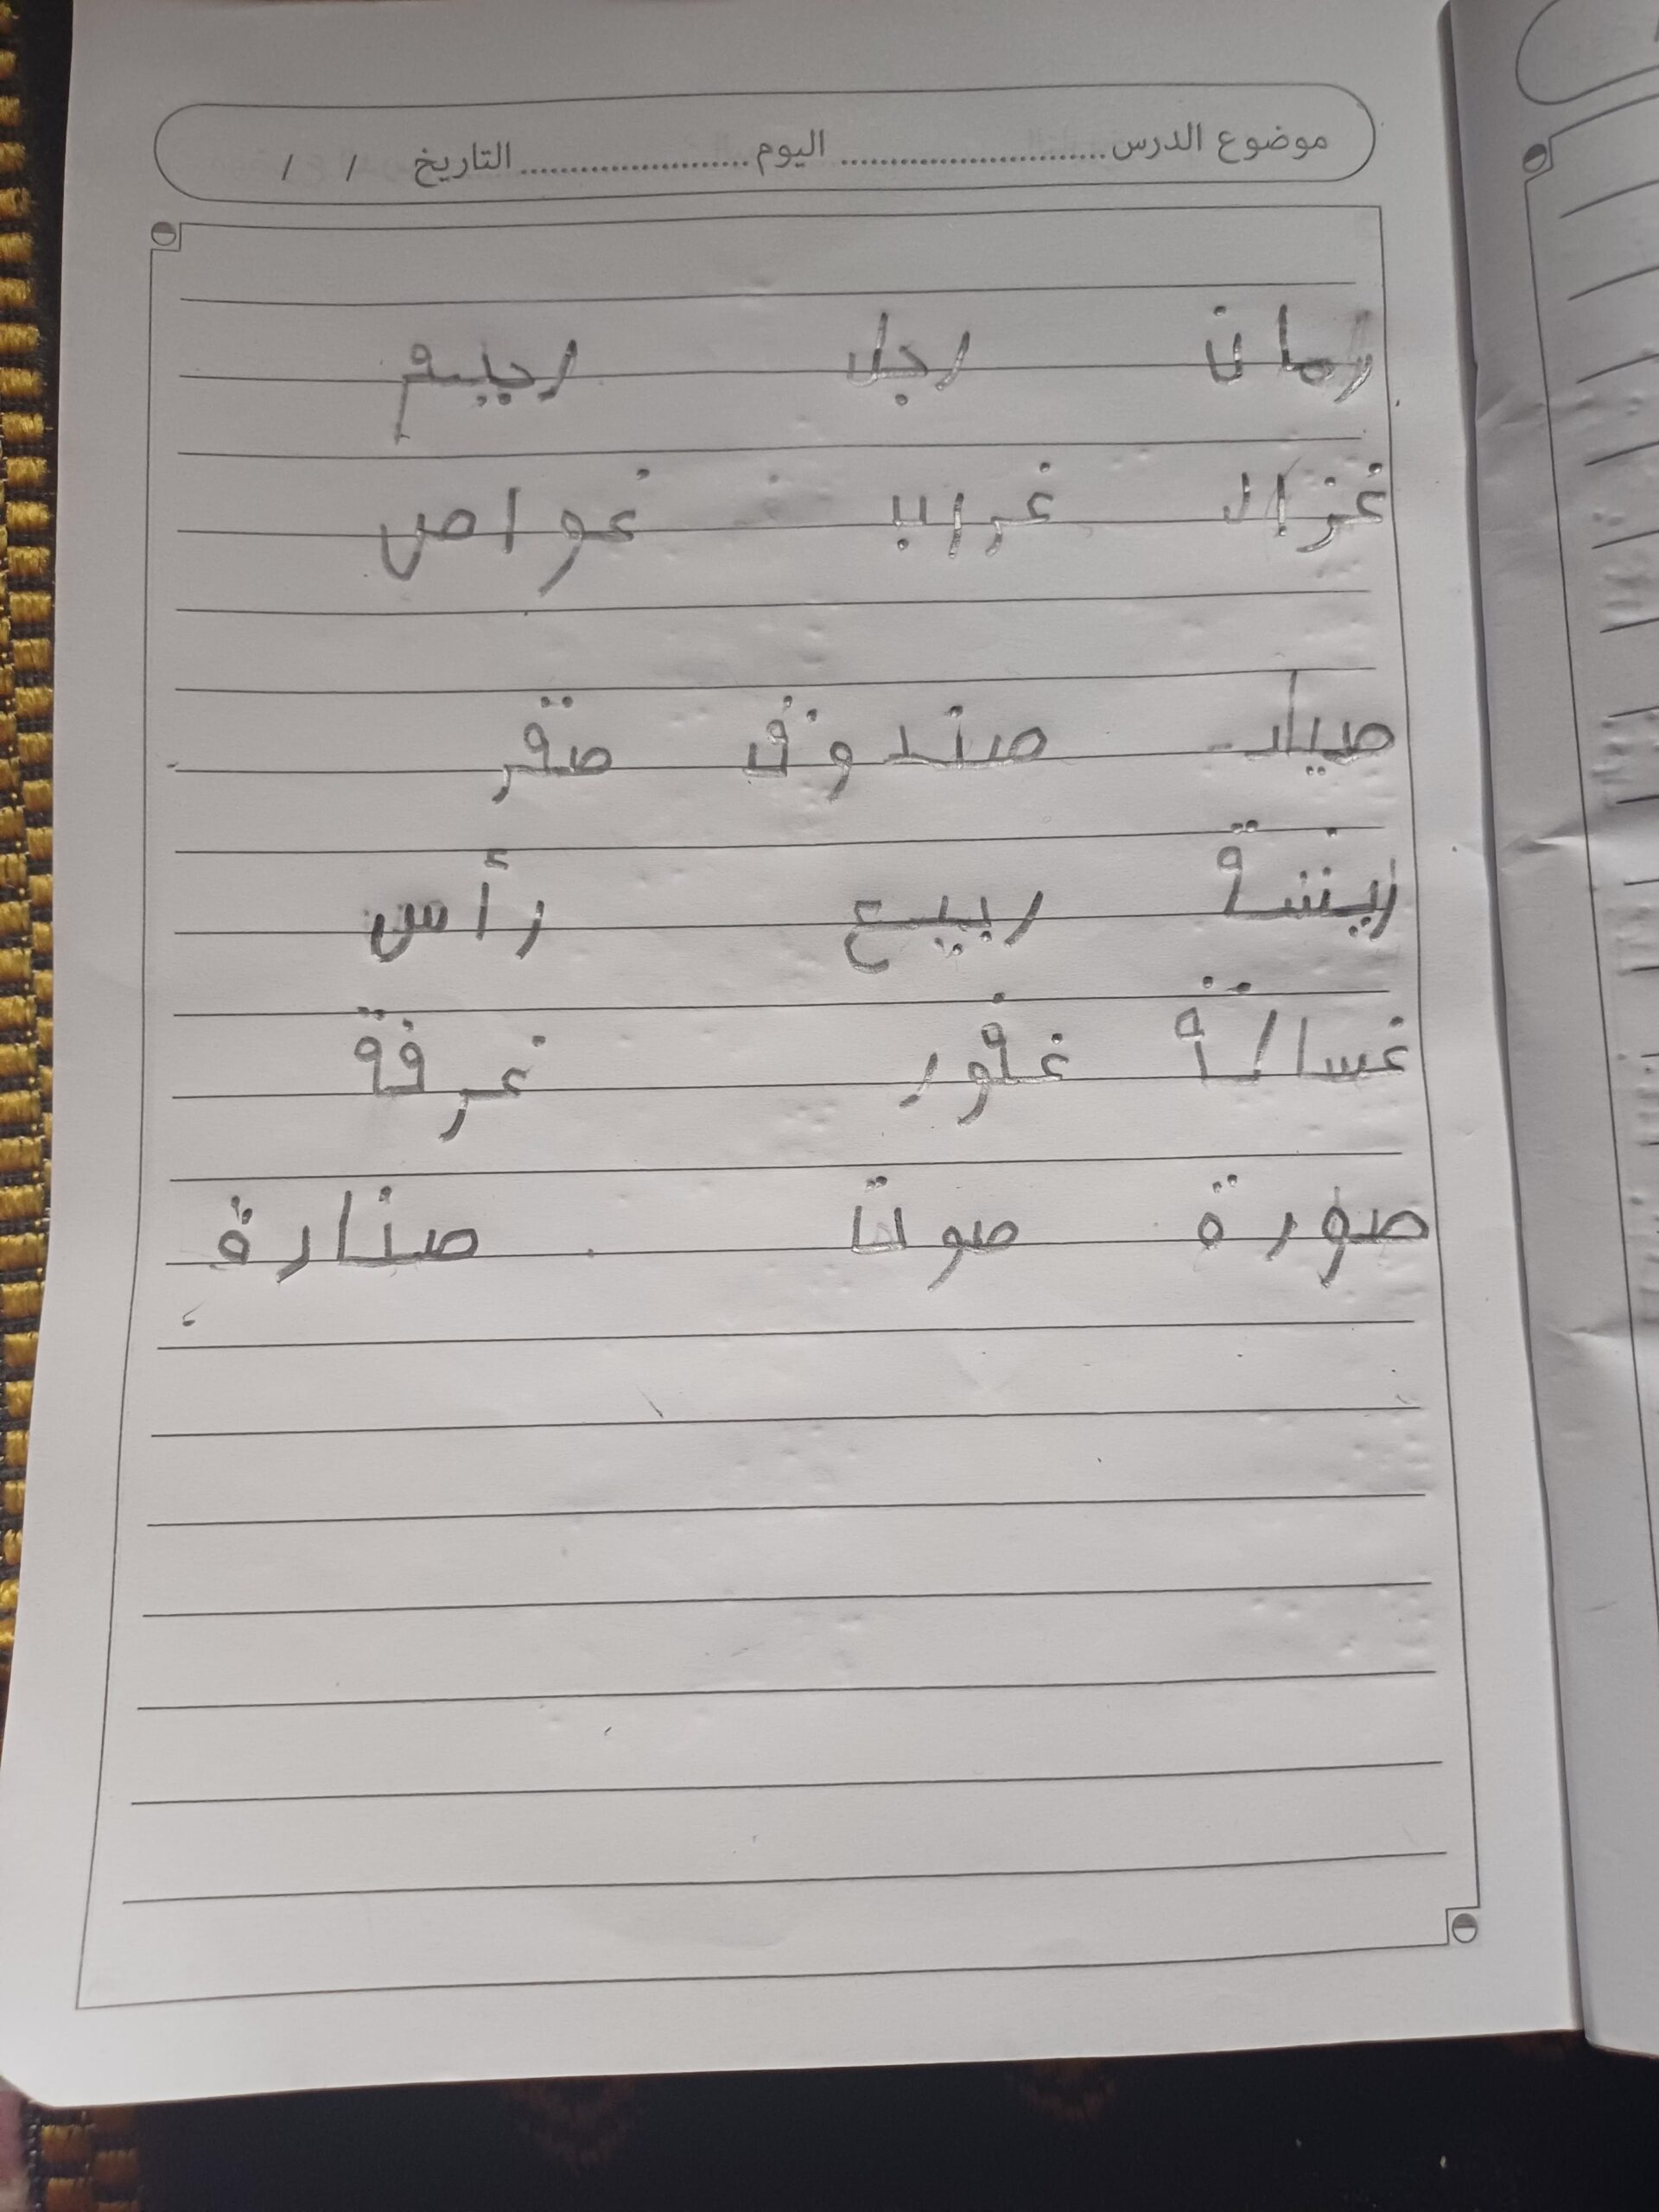 موضوع الدرس .......................... اليوم ....................... التاريخ / /
رمان رجل رجيم
غزال غراب غواص
صياد صندوق صقر
ريشة ربيع رأس
غسالة غفور غرفة
صورة صوت صنارة